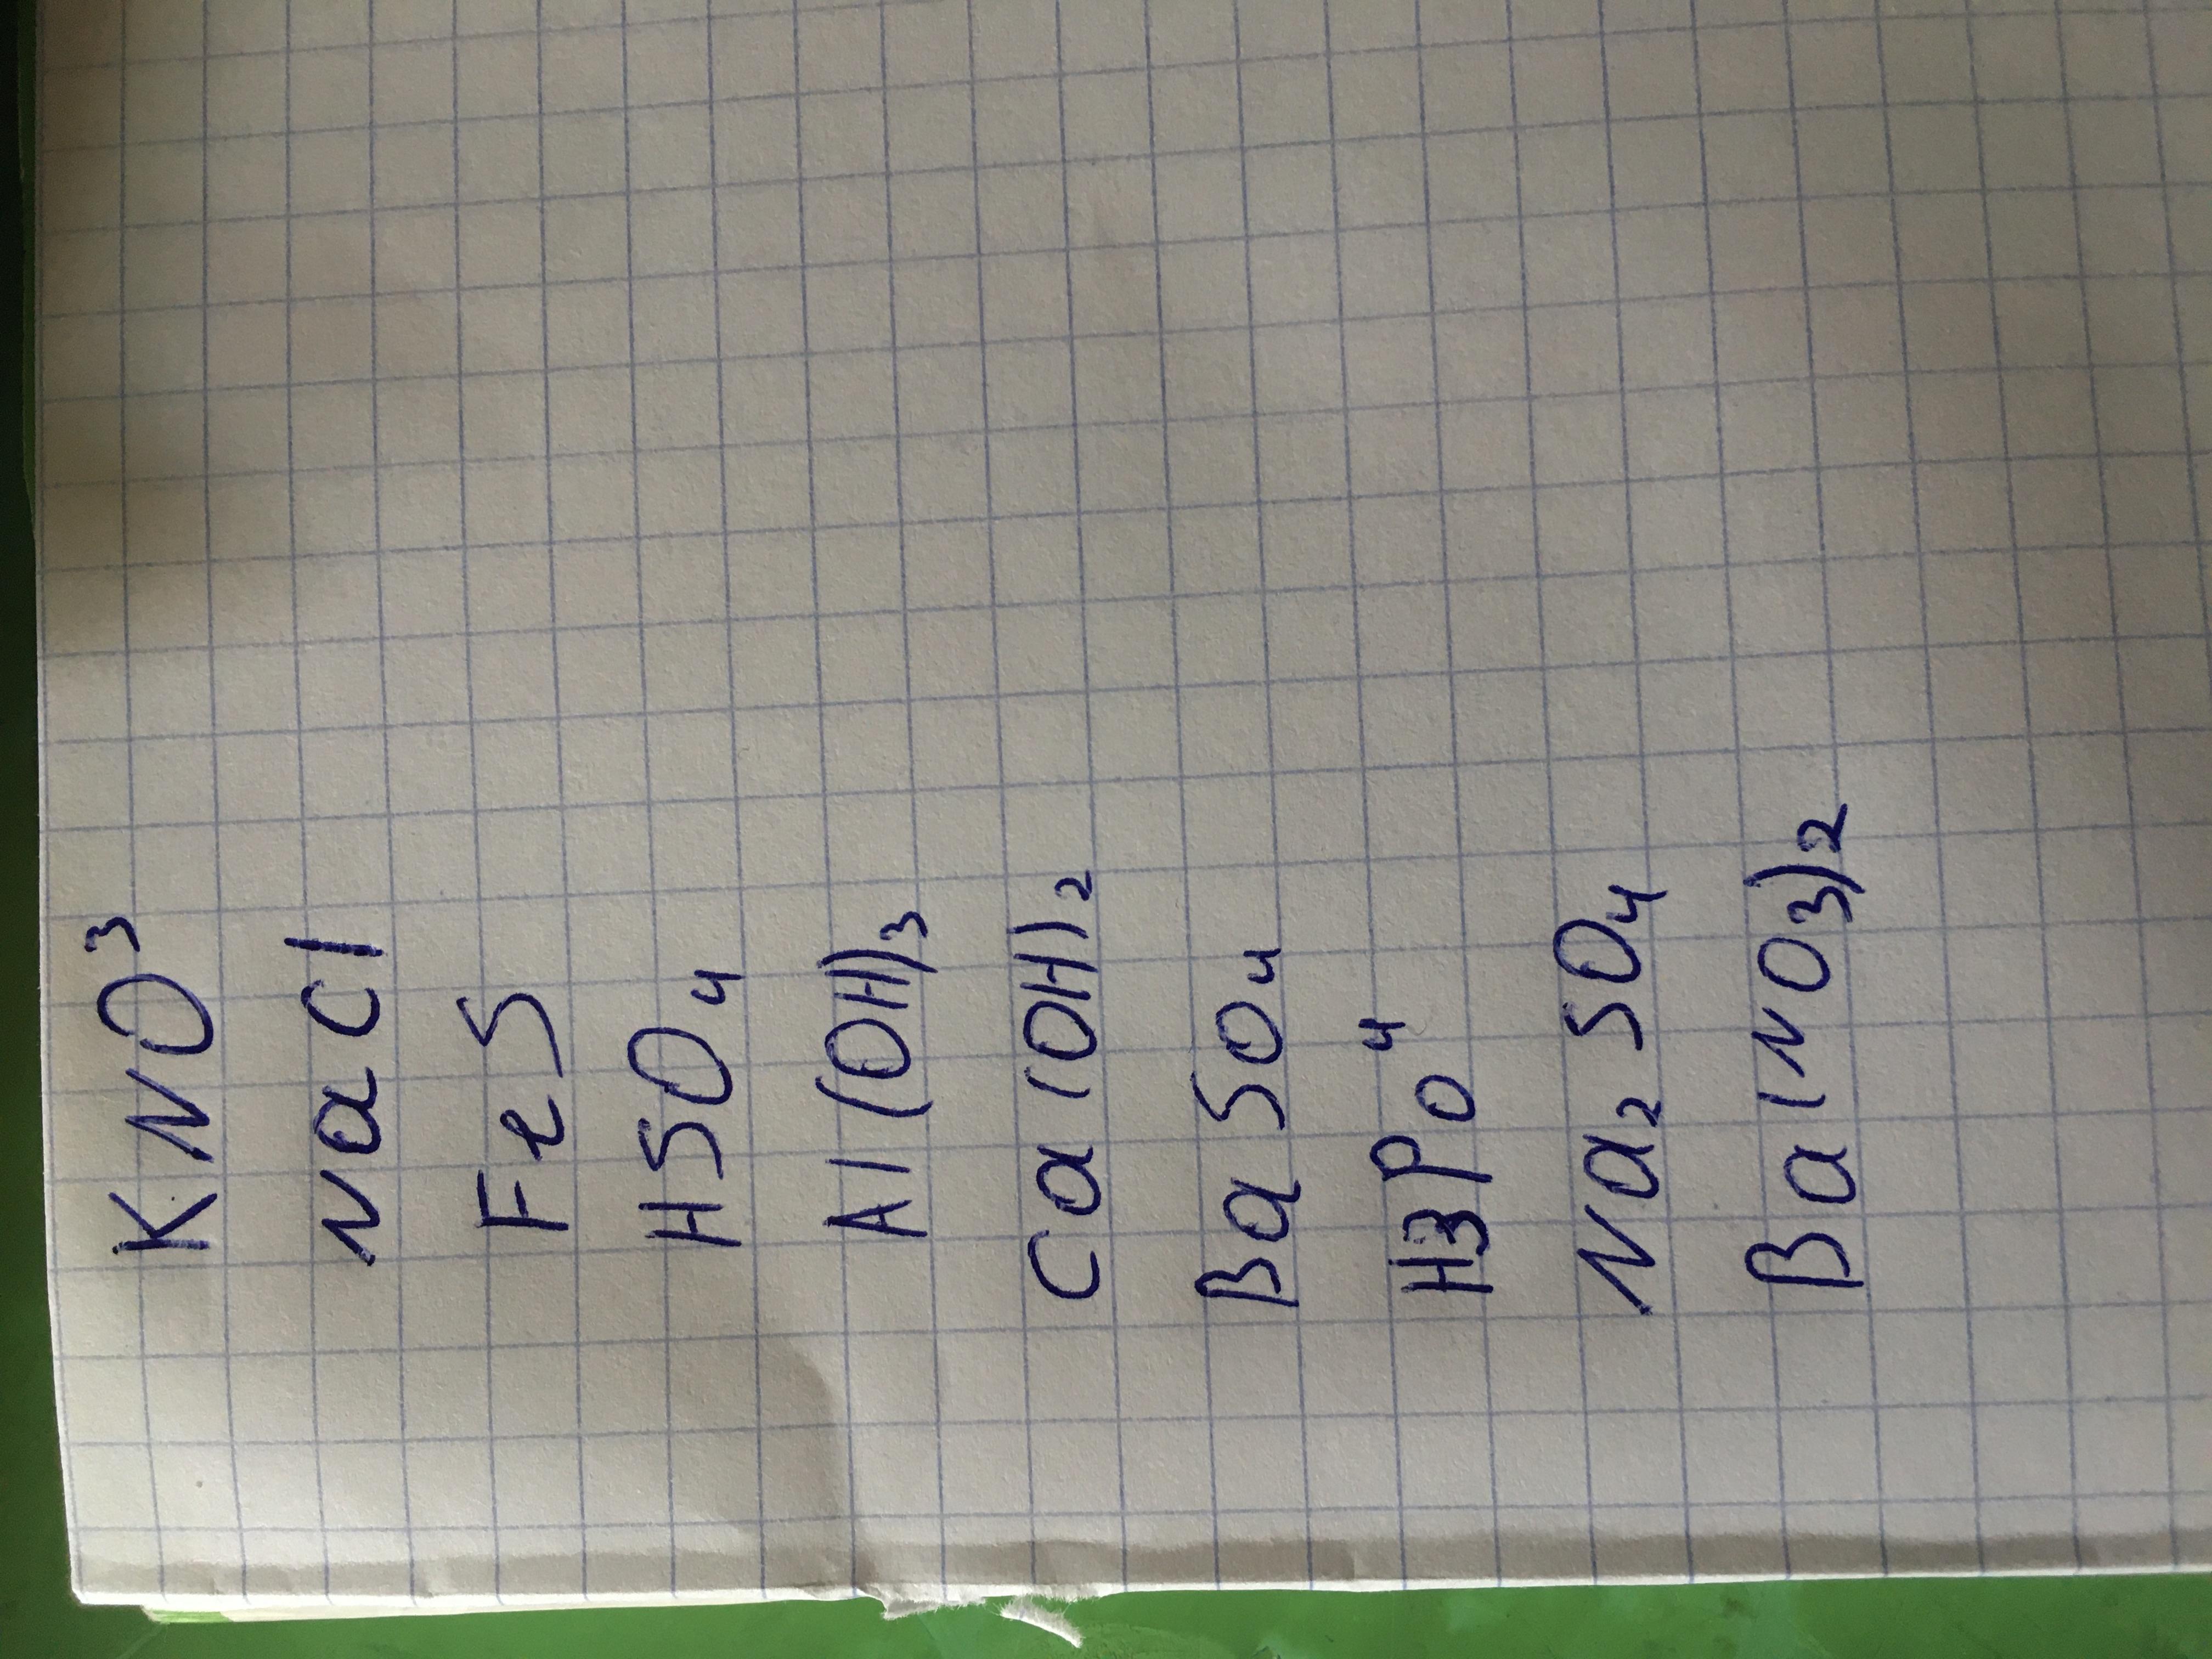 KNO³
NaCl
FeS
HSO₄
Al(OH)₃
Ca(OH)₂
BaSO₄
H3PO⁴
Na₂SO₄
Ba(NO₃)₂